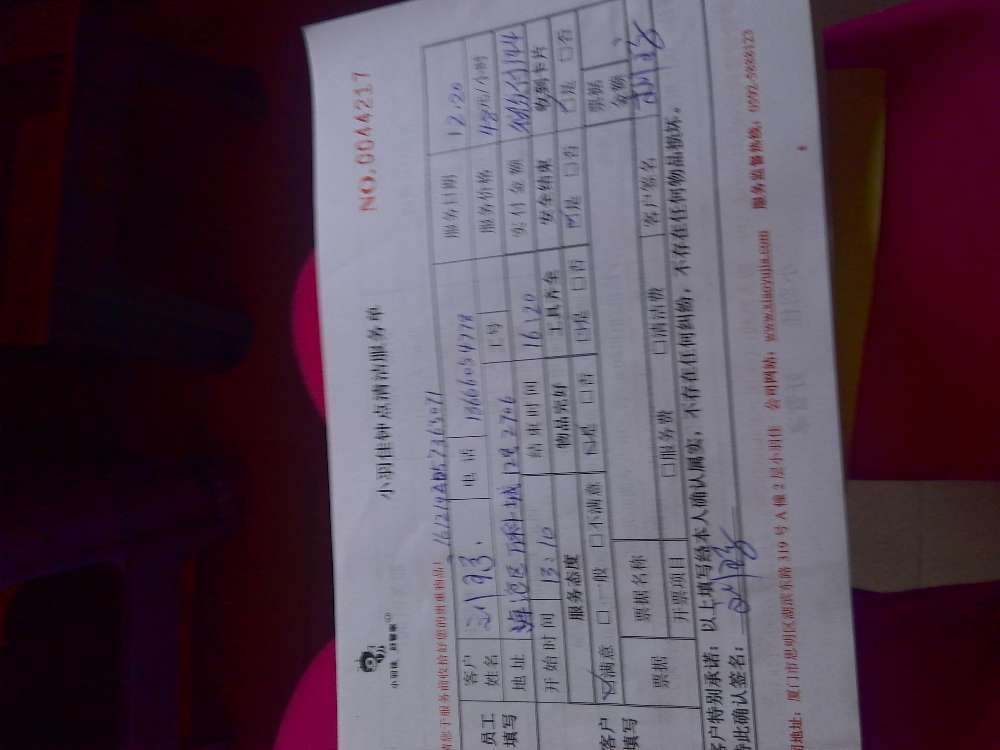 NO.0044217
小羽佳钟点清洁服务单
小羽佳，好管家
请您于服务前收拾好您的贵重物品！
员工填写
客户姓名 电话 13666054778 服务日期 12.20
地址 12号2706 工号 服务价格 48元/小时
开始时间 13:10 结束时间 16:20 实付金额 144
客户填写
服务态度 物品完好 工具齐全 安全结束 收到卡片
☑满意 □一般 □不满意 ☑是 □否 □是 □否 ☑是 □否 ☑是 □否
票据 票据名称 票据金额
开票项目 □服务费 □清洁费 客户签名
客户特别承诺：以上填写经本人确认属实，不存在任何纠纷，不存在任何物品损坏。
特此确认签名：
地址：厦门市思明区湖滨东路319号A幢2层小羽佳 公司网站：www.xiaoyujia.com 服务监督热线：0592-5888123